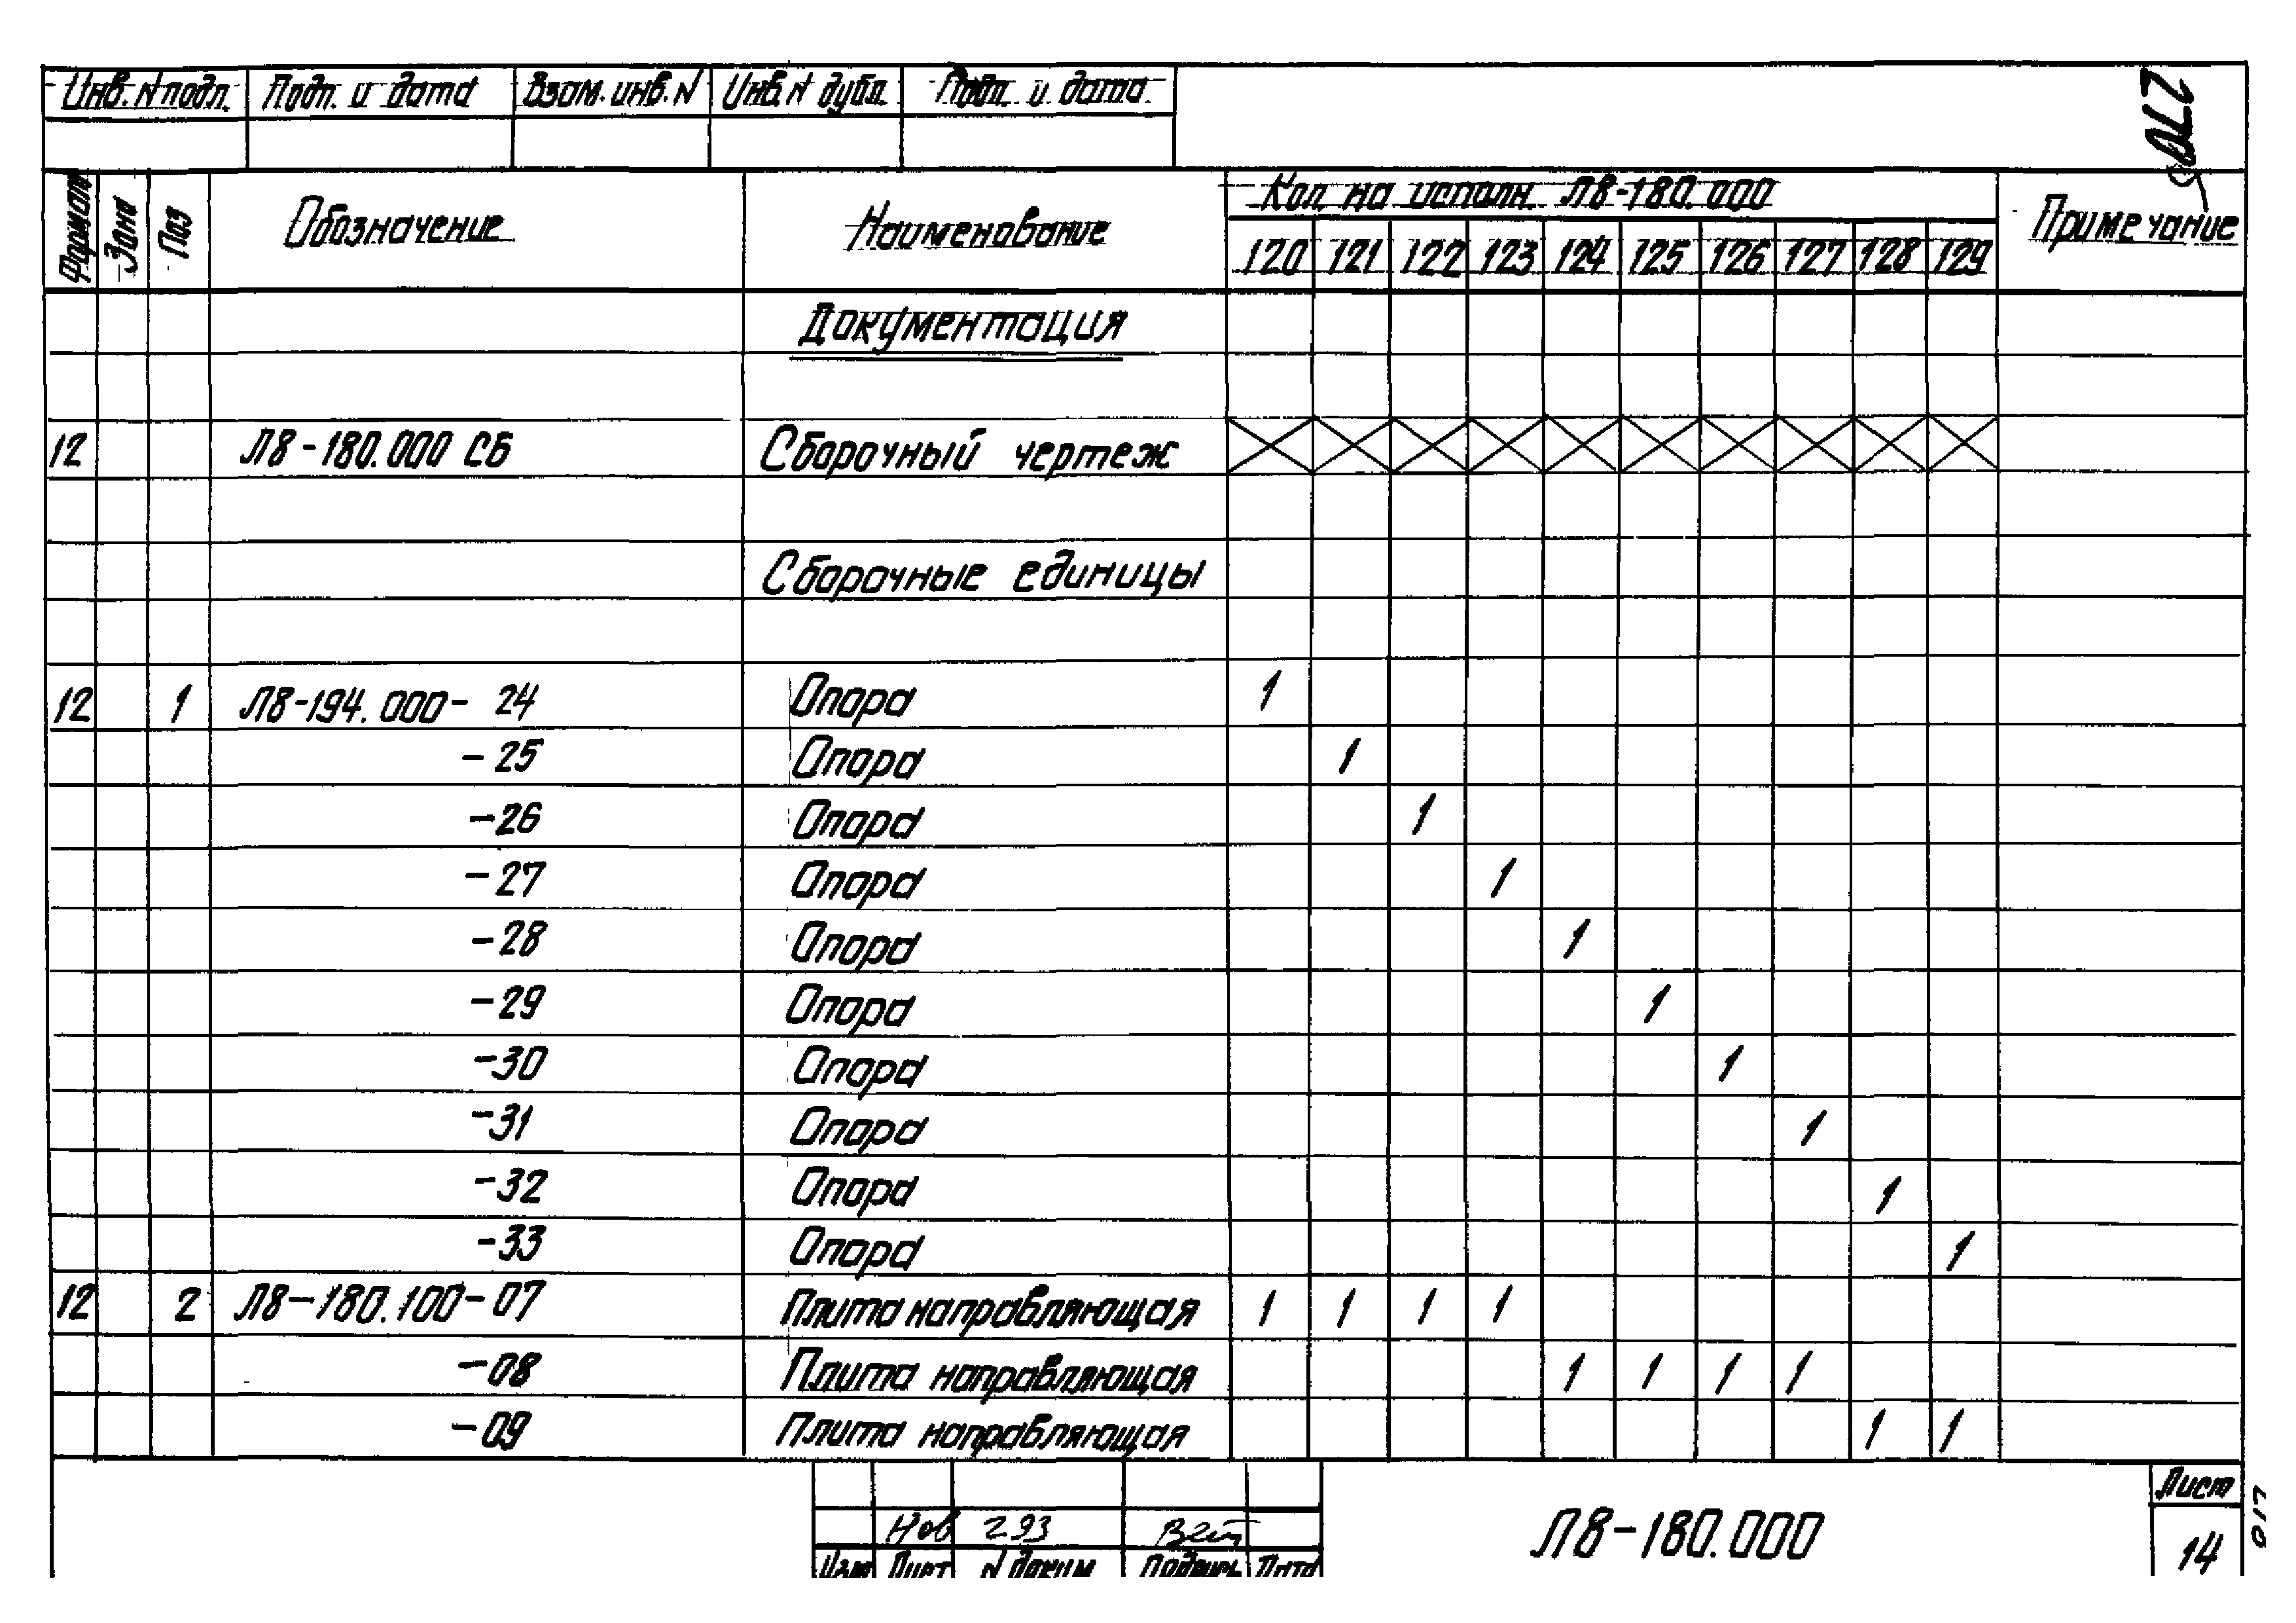 Инв. N подл. Подп. и дата Взам. инв. N Инв. N дубл. Подп. и дата
270
Формат Зона Поз Обозначение Наименование Кол. на исполн. Л8-180.000 Примечание
120 121 122 123 124 125 126 127 128 129
Документация
12 Л8-180.000 СБ Сборочный чертеж
Сборочные единицы
12 1 Л8-194.000- 24 Опора 1
-25 Опора 1
-26 Опора 1
-27 Опора 1
-28 Опора 1
-29 Опора 1
-30 Опора 1
-31 Опора 1
-32 Опора 1
-33 Опора 1
12 2 Л8-180.100-07 Плита направляющая 1 1 1 1
-08 Плита направляющая 1 1 1 1
-09 Плита направляющая 1 1
Нов 293
Изм Лист N докум Подпись Дата
Л8-180.000
Лист
14